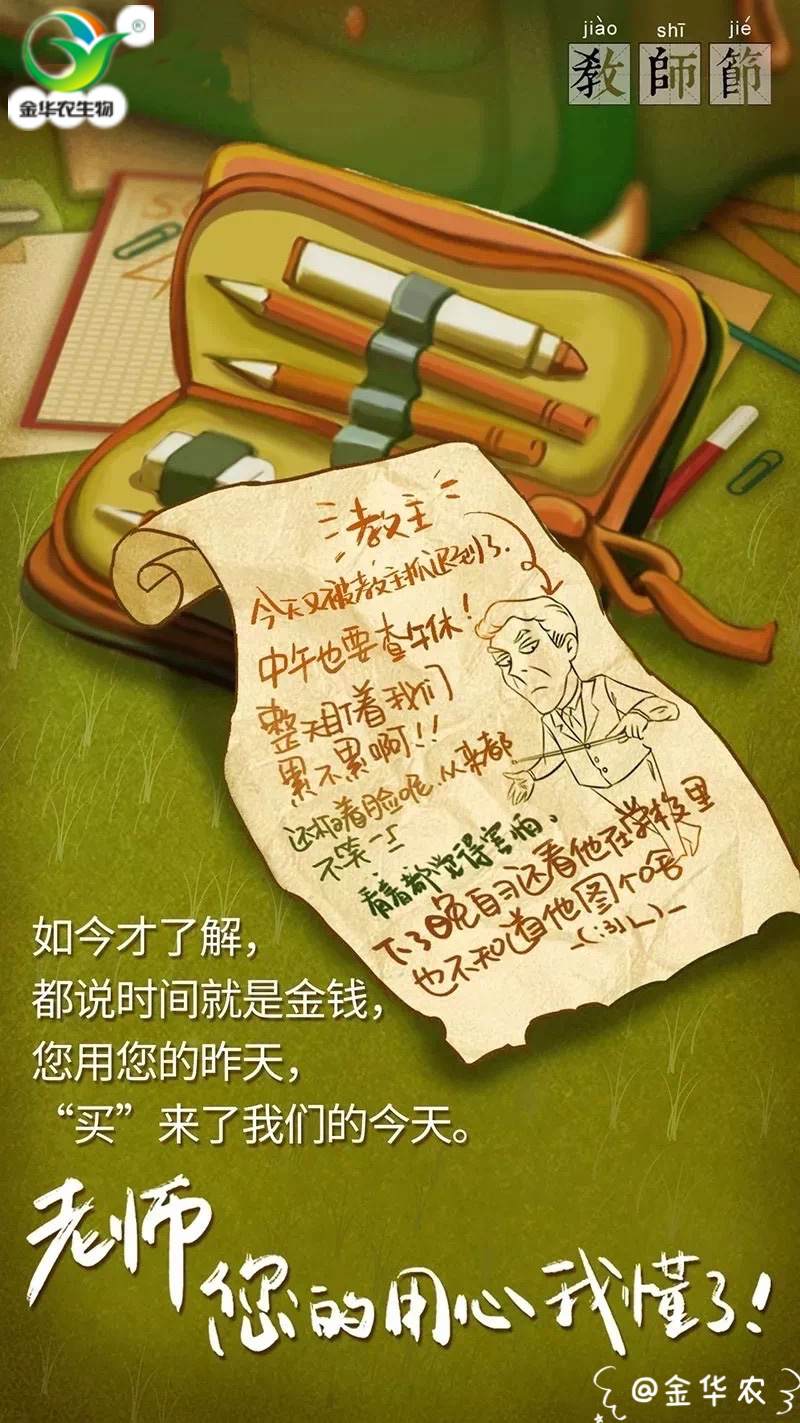 金华农生物
®
jiào shī jié
教師節
教主
今天又被教主抓迟到了.
中午也要查午休!
整天盯着我们
累不累啊!!
还板着脸呢,从来都
不笑
看着都觉得害怕.
下了晚自习还看他在学校里
也不知道他图个啥
如今才了解，
都说时间就是金钱，
您用您的昨天，
“买”来了我们的今天。
老师
您的用心我懂了!
@金华农